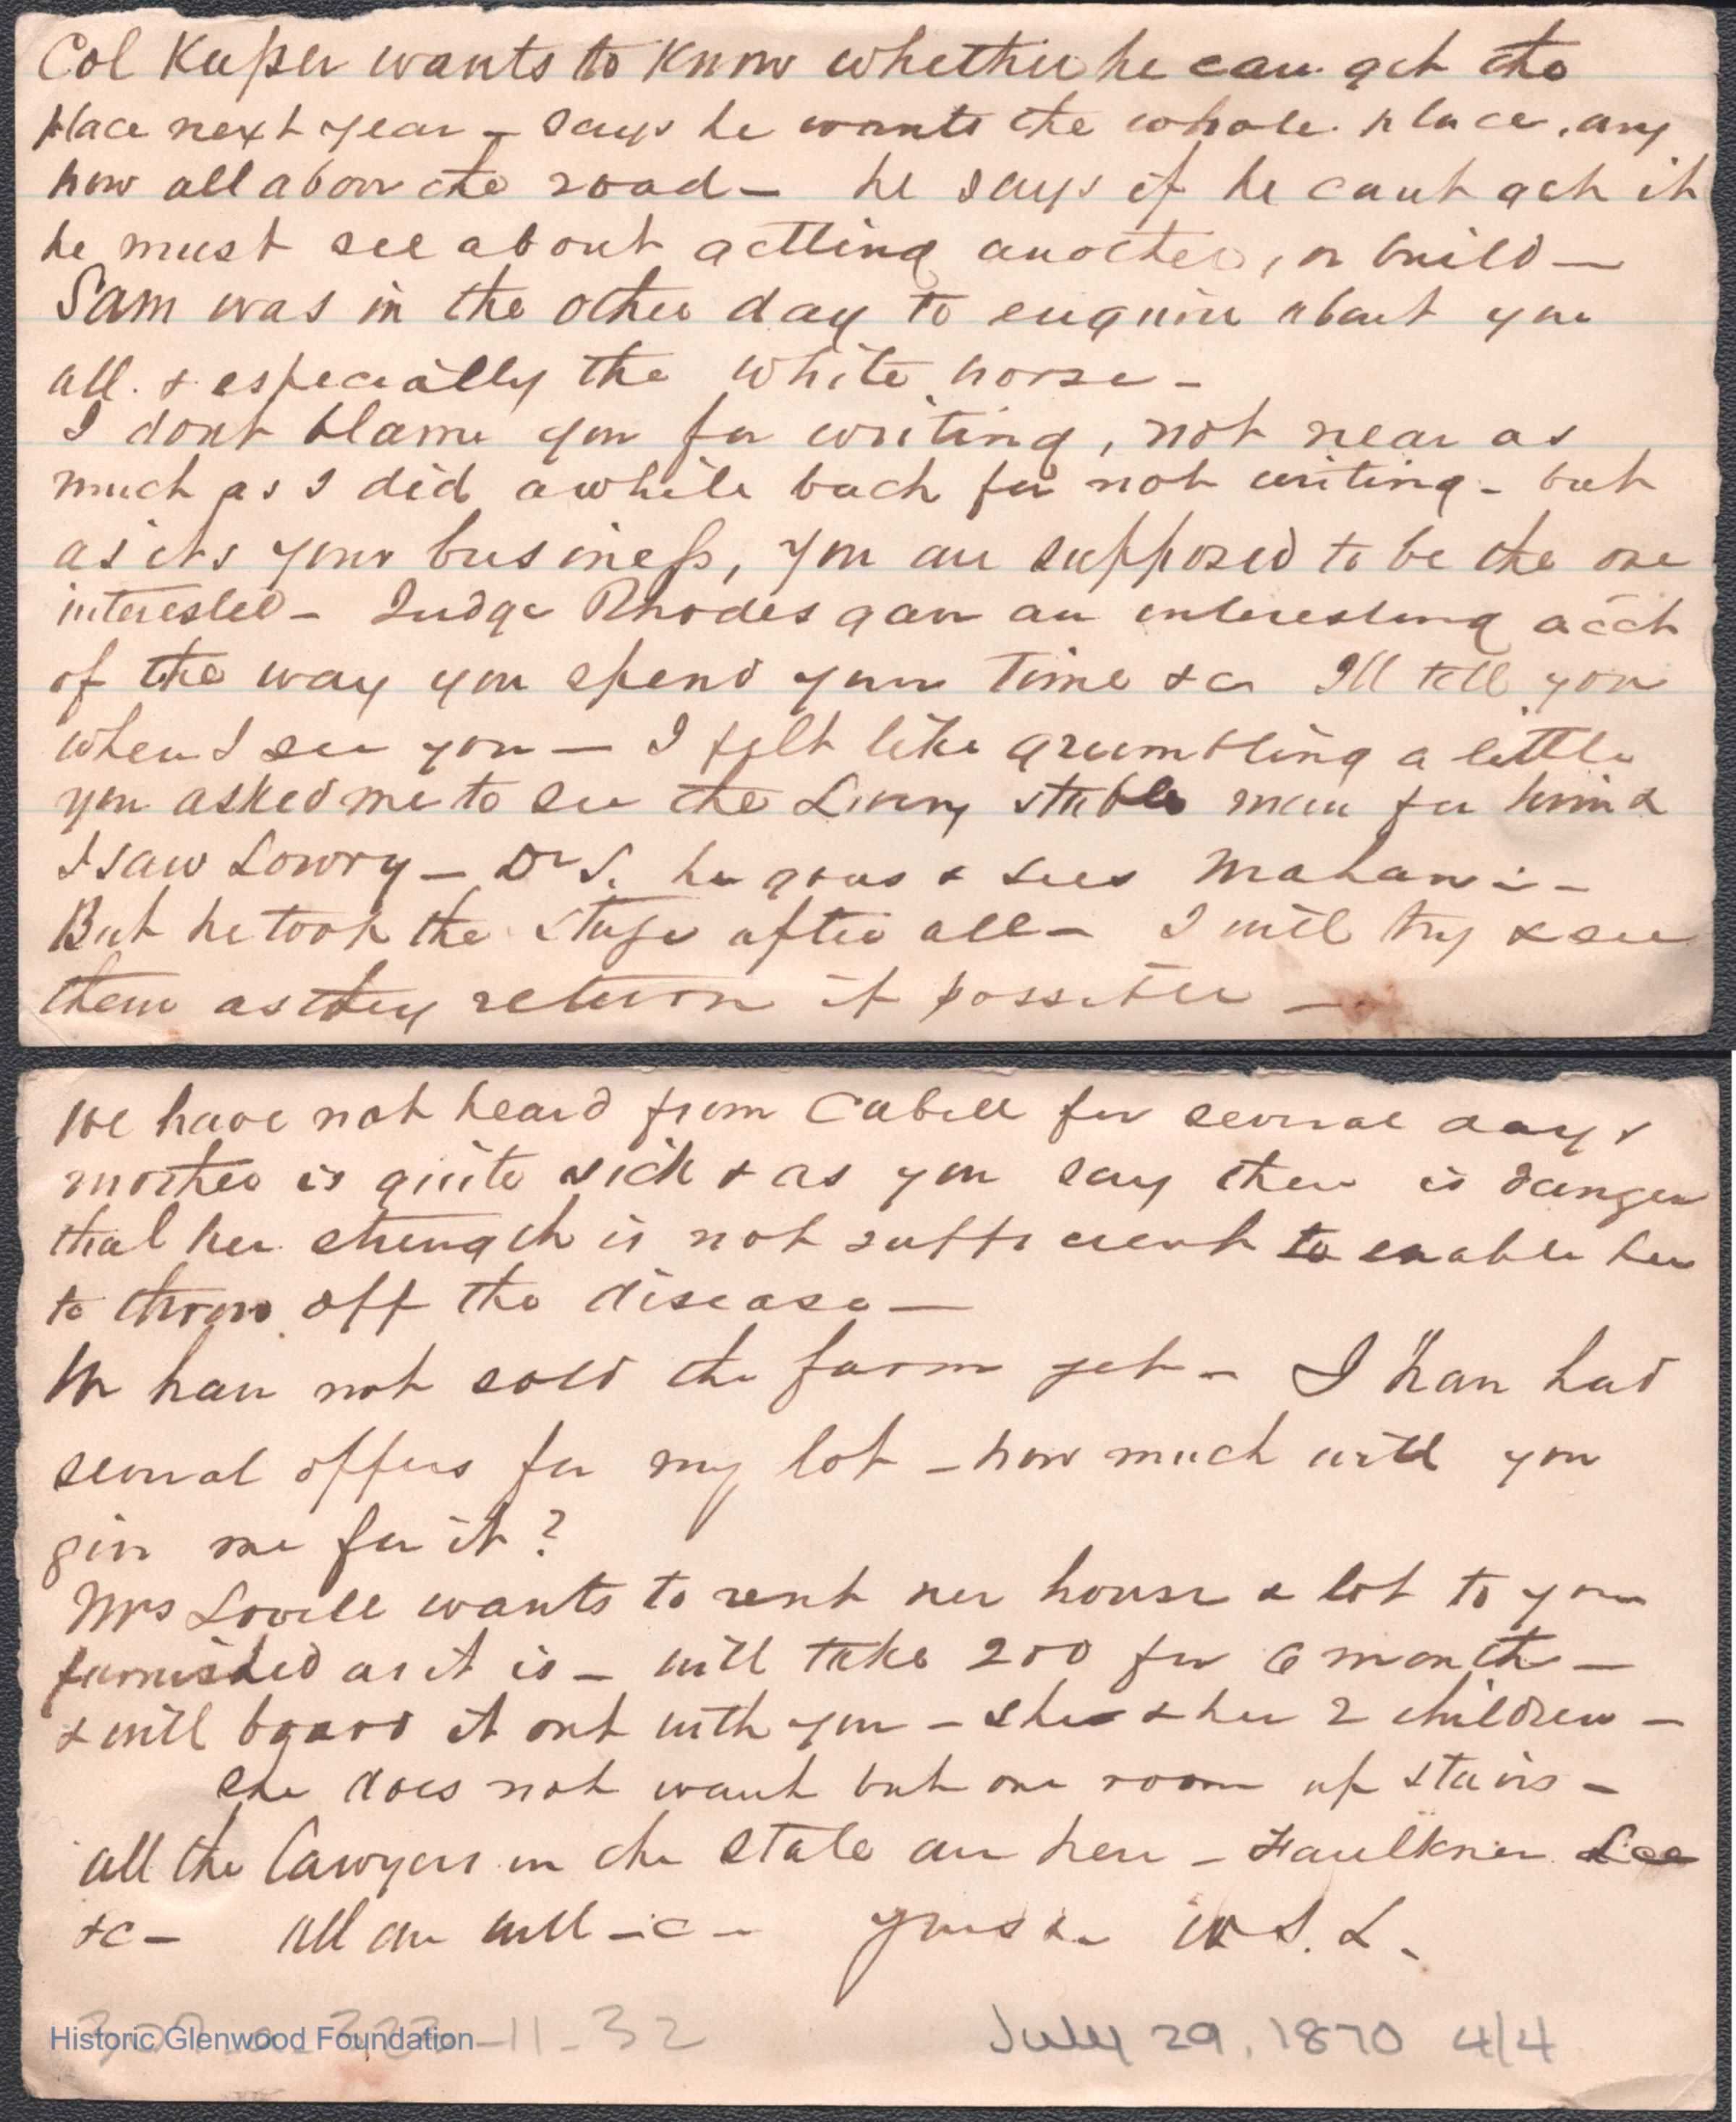 Col Kuper wants to know whether he can get the
place next year - says he wants the whole place, any
how all above the road - he says if he cant get it
he must see about getting another, or build -
Sam was in the other day to enquire about you
all. & especially the white horse -
I dont blame you for writing, not near as
much as I did awhile back for not writing - but
as its your business, you are supposed to be the one
interested - Judge Rhodes gave an interesting acct
of the way you spend your time &c Ill tell you
when I see you - I felt like grumbling a little
you asked me to see the Livery stable man for him &
I saw Lowry - Dr S. he goes & sees
But he took the stage after all - I will try & see
them as they return if possible -
We have not heard from Cabell for several days
mother is quite sick & as you say there is danger
that her strength is not sufficient to enable her
to throw off the disease -
We have not sold the farm yet - I have had
several offers for my lot - how much will you
give me for it?
Mrs Lovell wants to rent her house & lot to you
furnished as it is - will take 200 for 6 month -
& will board it out with you - she & her 2 children -
she does not want but one room up stairs -
all the lawyers in the state are here - Faulkner Lee
&c - All are well - yours &c W S. L.
-11-32 July 29, 1870 4/4
Historic Glenwood Foundation